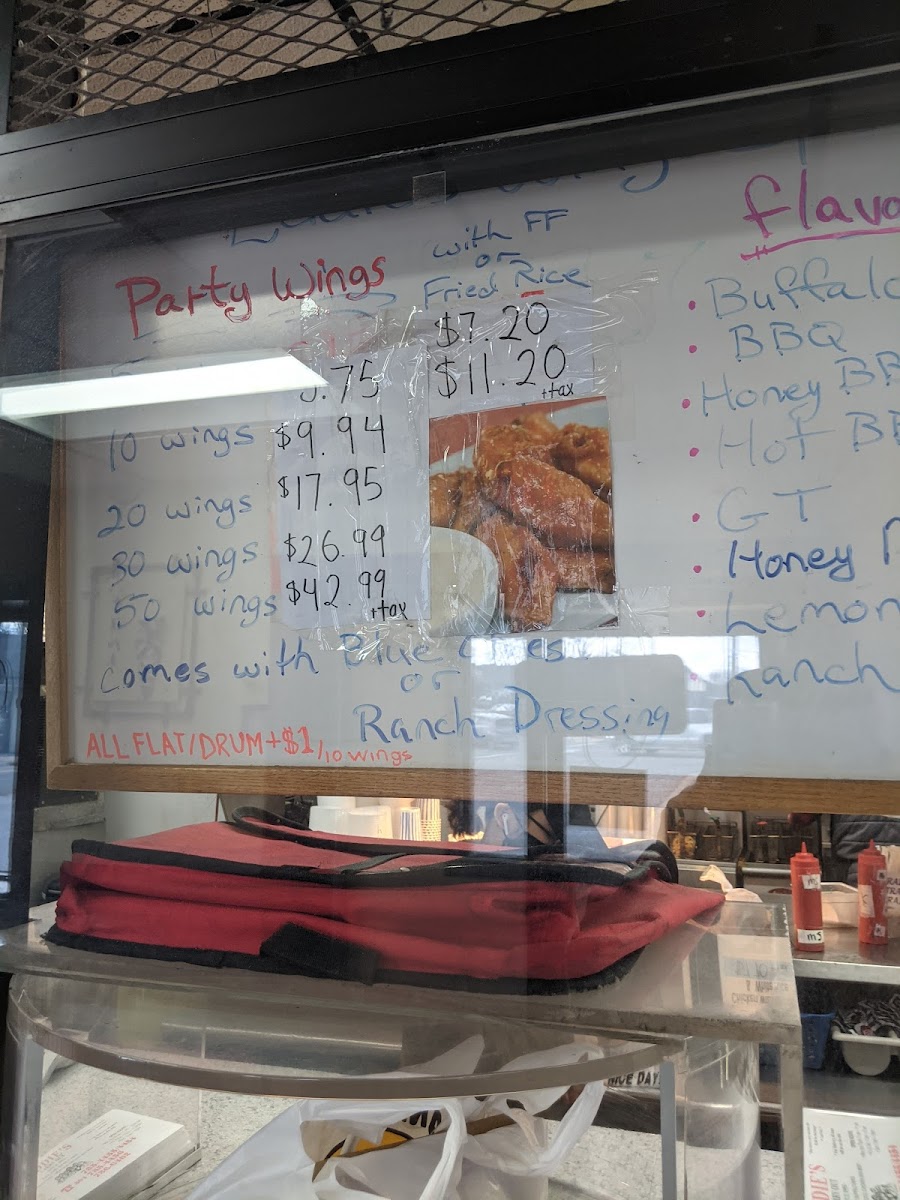 Party Wings
with FF
or
Fried Rice
$7.20
.75 $11.20
+tax
10 wings $9.94
20 wings $17.95
30 wings $26.99
50 wings $42.99
+tax
comes with Blue
or
Ranch Dressing
ALL FLAT/DRUM+$1/10 wings
Flavo
• Buffalo
• BBQ
• Honey BB
• Hot BB
• GT
• Honey
• Lemon
• Ranch
NICE DAY